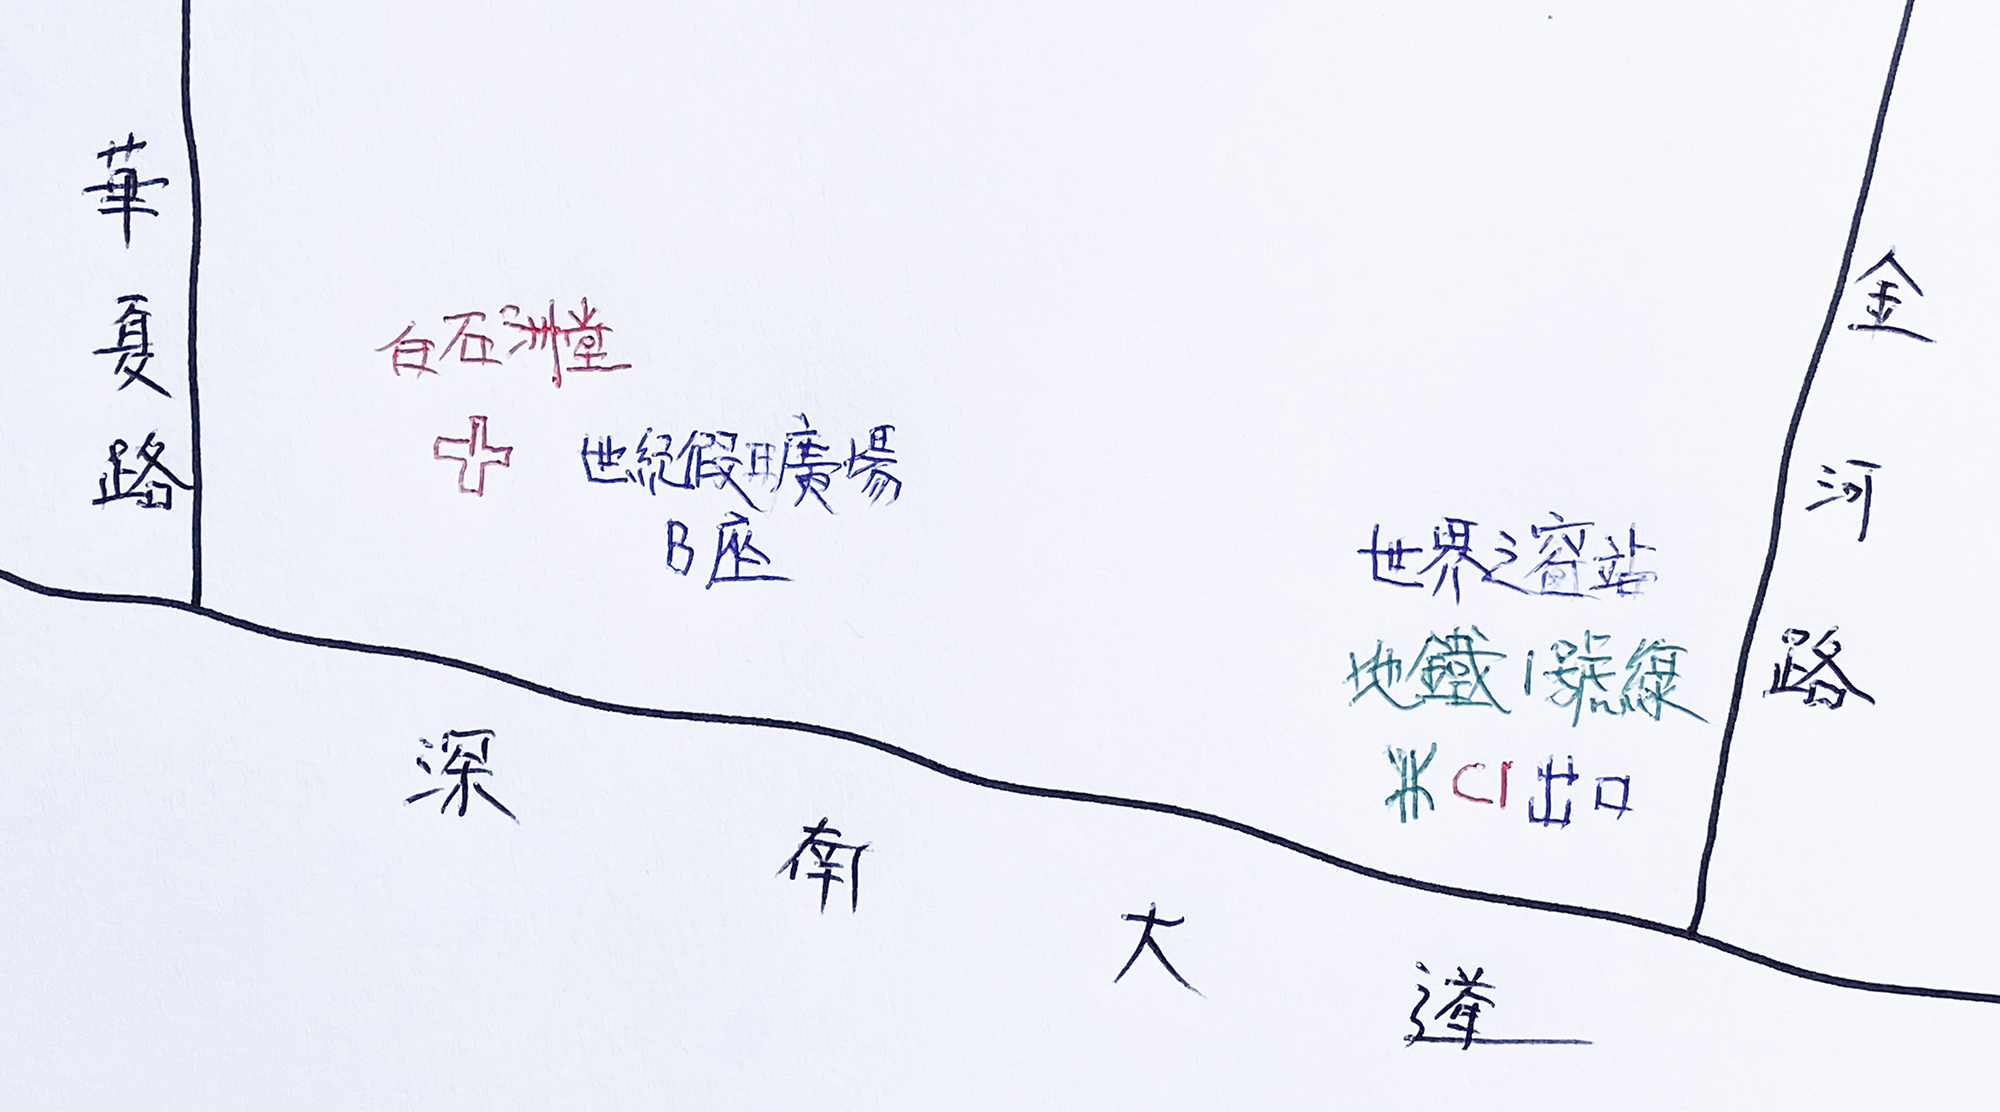 華夏路
白石洲堂
世紀假日廣場
B座
金河路
世界之窗站
地鐵1號線
C1出口
深南大道